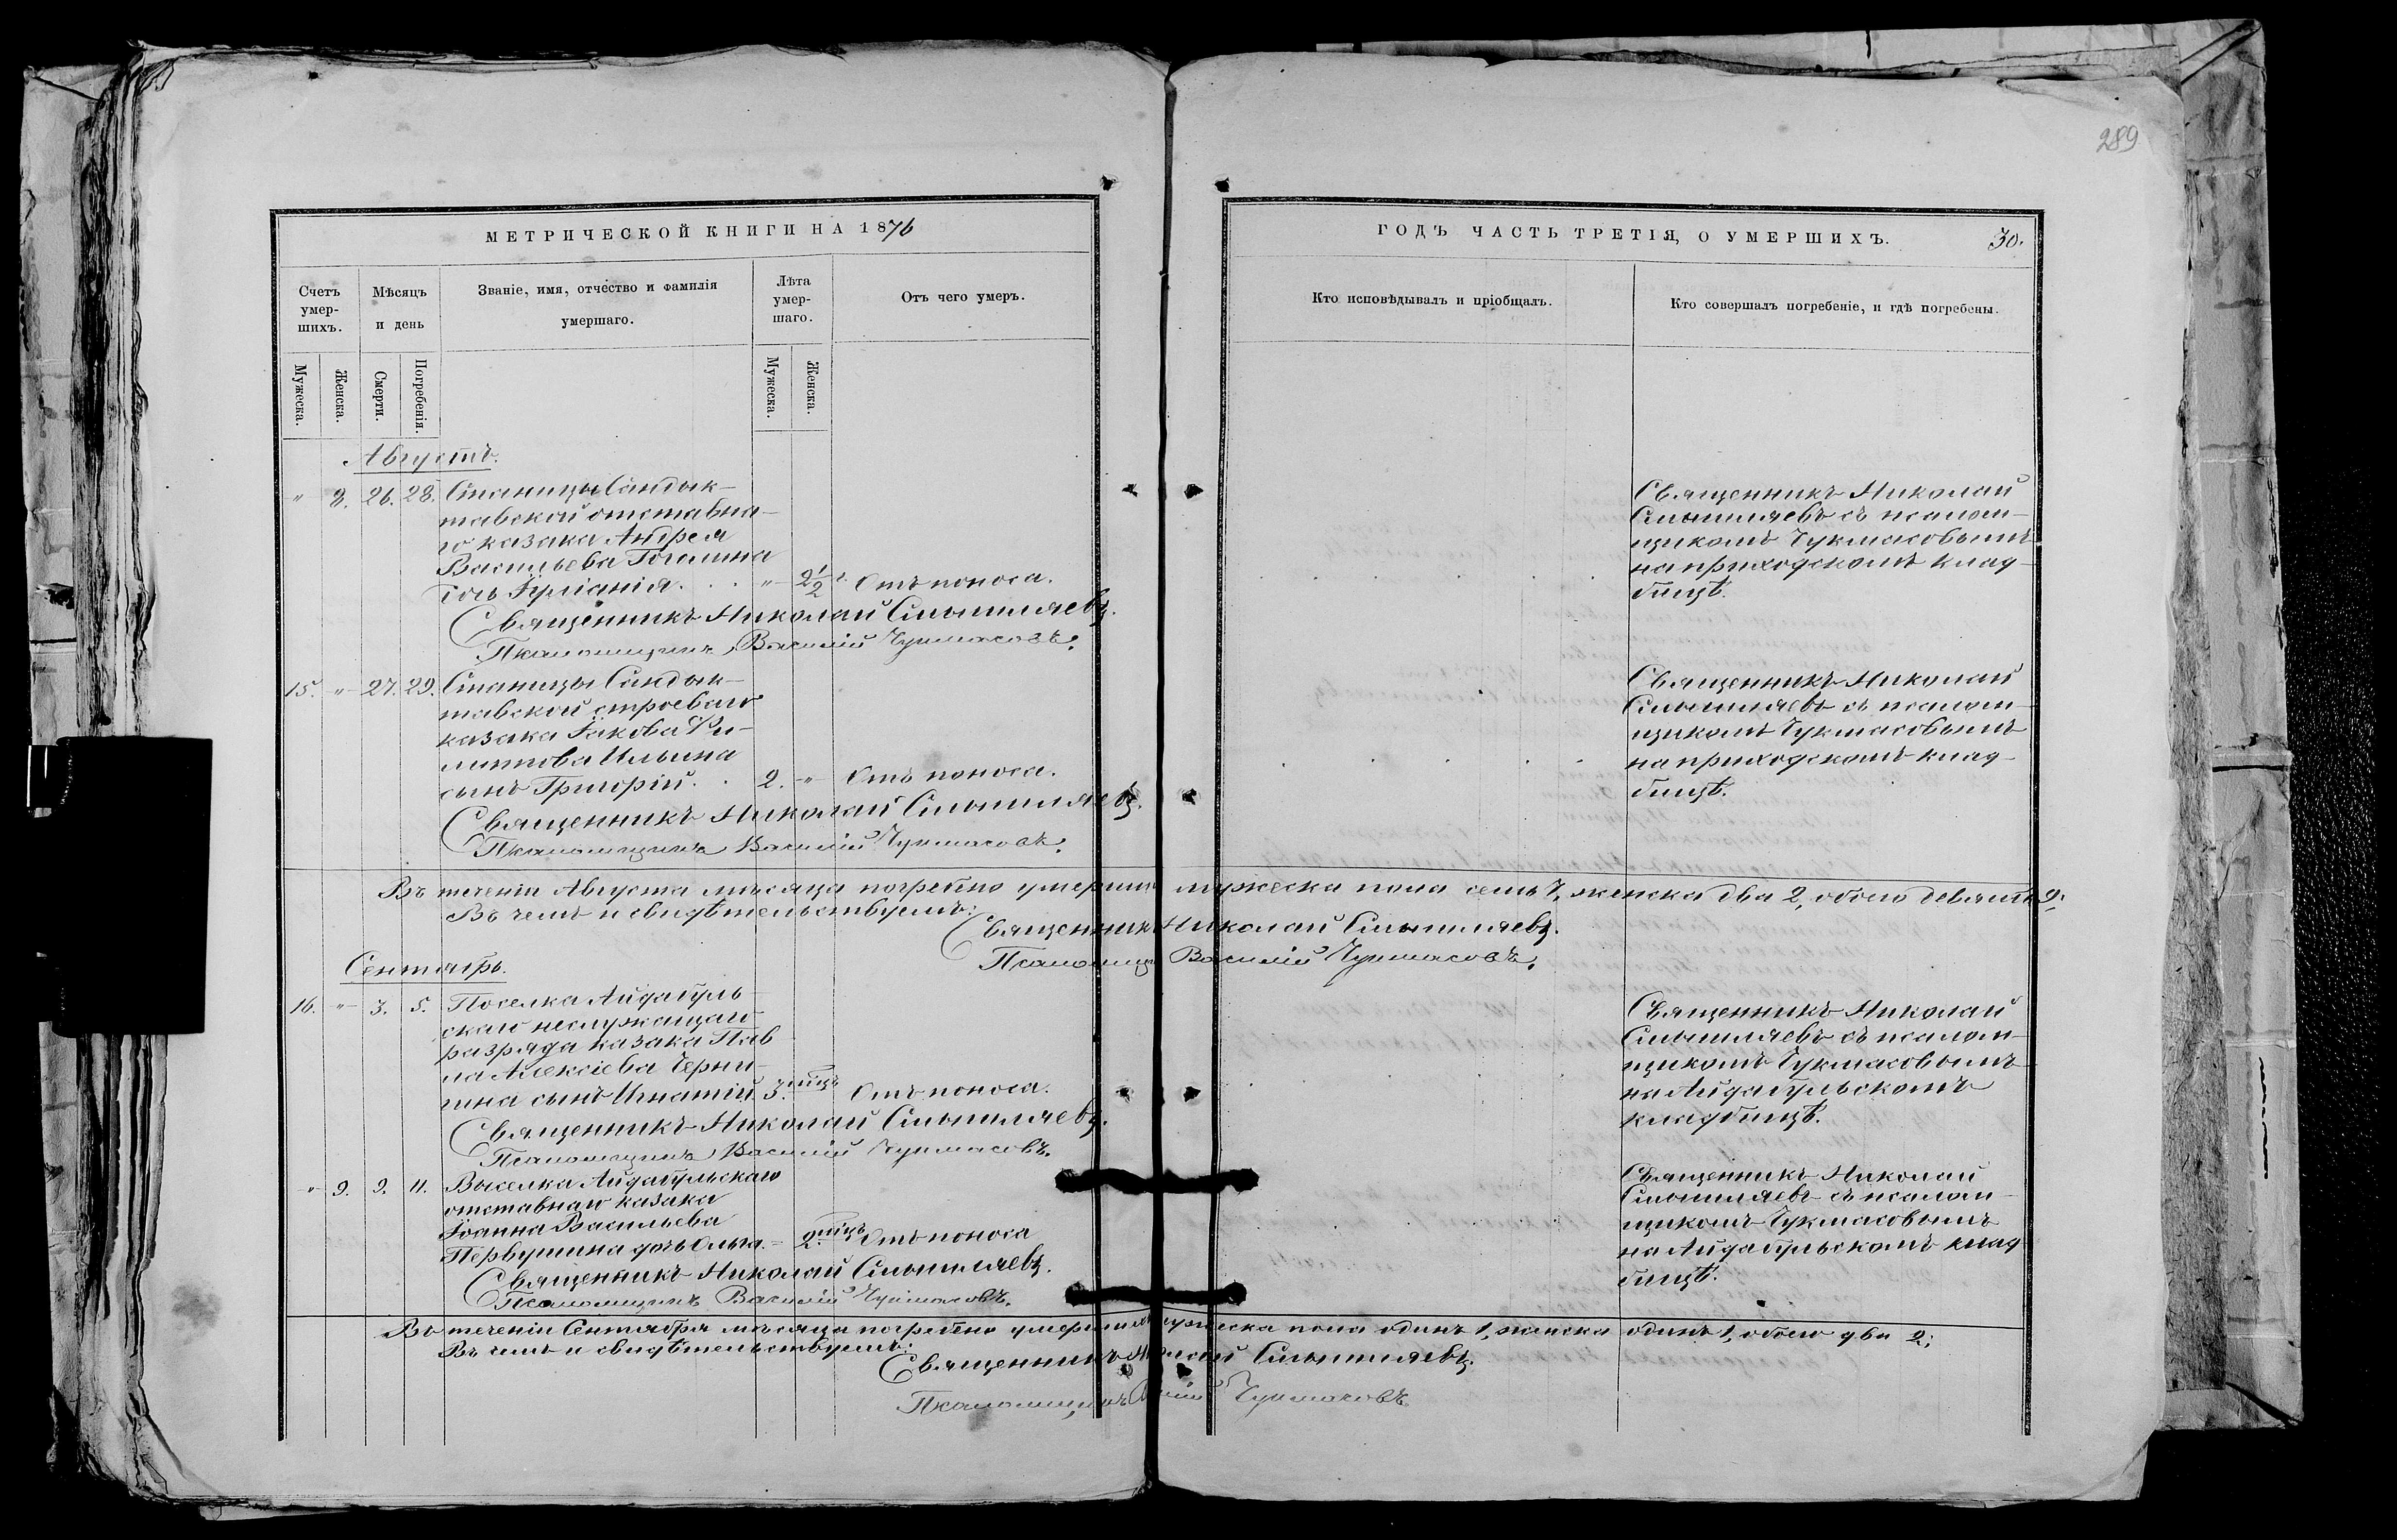 289
МЕТРИЧЕСКОЙ КНИГИ НА 1876
ГОДЪ ЧАСТЬ ТРЕТІЯ, О УМЕРШИХЪ.
30.
Счетъ умер-шихъ.
Мѣсяцъ и день
Званіе, имя, отчество и фамилія умершаго.
Лѣта умер-шаго.
Отъ чего умеръ.
Кто исповѣдывалъ и пріобщалъ.
Кто совершалъ погребеніе, и гдѣ погребены.
Мужеска.
Женска.
Смерти.
Погребенія.
Мужеска.
Женска.
Августъ.
" 8. 26. 28. Станицы Сандык-
тавской отставна-
го казака Андрея
Васильева
дочь Іуліанія. " 2½ Отъ поноса.
Священникъ Николай
Псаломщикъ Василій Чукмасовъ.
Священникъ Николай
съ псалом-
щикомъ Чукмасовымъ
на приходскомъ клад-
бищѣ.
15. " 27. 29. Станицы Сандык-
тавской строеваго
казака Іакова Фи-
липпова Ильина
сынъ Григорій. 2. " Отъ поноса.
Священникъ Николай
Псаломщикъ Василій Чукмасовъ.
Священникъ Николай
съ псалом-
щикомъ Чукмасовымъ
на приходскомъ клад-
бищѣ.
Въ теченіи Августа мѣсяца погребено умерших мужеска пола семь 7, женска два 2, обоего девять 9.
Въ чемъ и свидѣтельствуемъ:
Священник Николай
Псаломщ Василій Чукмасовъ.
Сентябрь.
16. " 3. 5. Поселка Айдабуль-
скаго неслужащаго
разряда казака Пав
ла Алексіева
сынъ Игнатій 3. мѣц. Отъ поноса.
Священникъ Николай
Псаломщикъ Василій Чукмасовъ.
Священникъ Николай
съ псалом-
щикомъ Чукмасовымъ
на Айдабульскомъ
кладбищѣ.
" 9. 9. 11. Выселка Айдабульскаго
отставнаго казака
Іоанна Васильева
Первушина дочь Ольга. 2. мѣц. Отъ поноса
Священникъ Николай
Псаломщикъ Василій Чукмасовъ.
Священникъ Николай
съ псалом-
щикомъ Чукмасовымъ
на Айдабульскомъ клад
бищѣ.
Въ теченіи Сентября мѣсяца погребено умерших мужеска пола одинъ 1, женска одинъ 1, обоего два 2;
Въ чемъ и свидѣтельствуемъ:
Священникъ
Псаломщикъ Чукмасовъ